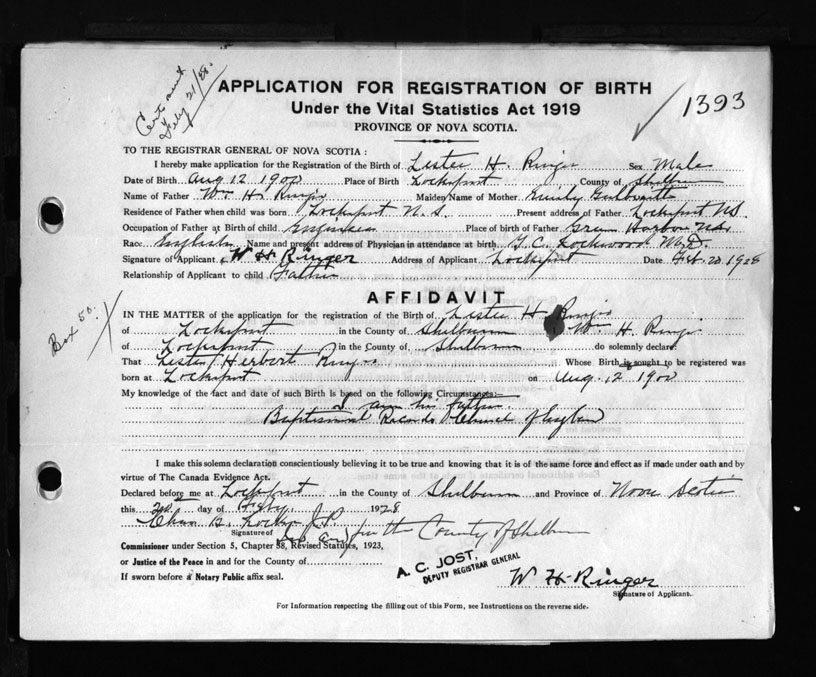 Cert sent
Feby 21/28.
APPLICATION FOR REGISTRATION OF BIRTH
Under the Vital Statistics Act 1919
PROVINCE OF NOVA SCOTIA.
1393
TO THE REGISTRAR GENERAL OF NOVA SCOTIA :
I hereby make application for the Registration of the Birth of Lester H. Ringer Sex Male
Date of Birth Aug 12 1900 Place of Birth Lockeport County of Shelburne
Name of Father Wm. H. Ringer Maiden Name of Mother Emily
Residence of Father when child was born Lockeport N. S. Present address of Father Lockeport NS.
Occupation of Father at Birth of child Engineer Place of birth of Father Green Harbor NS.
Race English Name and present address of Physician in attendance at birth Lockwood M.D.
Signature of Applicant W H Ringer Address of Applicant Lockeport Date Feb. 20 1928
Relationship of Applicant to child Father
AFFIDAVIT
IN THE MATTER of the application for the registration of the Birth of Lester H Ringer
Box 50.
of Lockeport in the County of Shelburne I Wm H. Ringer
of Lockeport in the County of Shelburne do solemnly declare:
That Lester Herbert Ringer Whose Birth is sought to be registered was
born at Lockeport on Aug. 12 1900
My knowledge of the fact and date of such Birth is based on the following Circumstances:—
I am his father
Baptismal Records Church of England
I make this solemn declaration conscientiously believing it to be true and knowing that it is of the same force and effect as if made under oath and by
virtue of The Canada Evidence Act.
Declared before me at Lockeport in the County of Shelburne and Province of Nova Scotia
this 20 day of Feby 1928
Chas Locke J.P.
Signature of in & for the County of Shelburne
Commissioner under Section 5, Chapter 38, Revised Statutes, 1923,
or Justice of the Peace in and for the County of
If sworn before a Notary Public affix seal.
A. C. JOST,
DEPUTY REGISTRAR GENERAL
W H Ringer
Signature of Applicant.
For Information respecting the filling out of this Form, see Instructions on the reverse side.